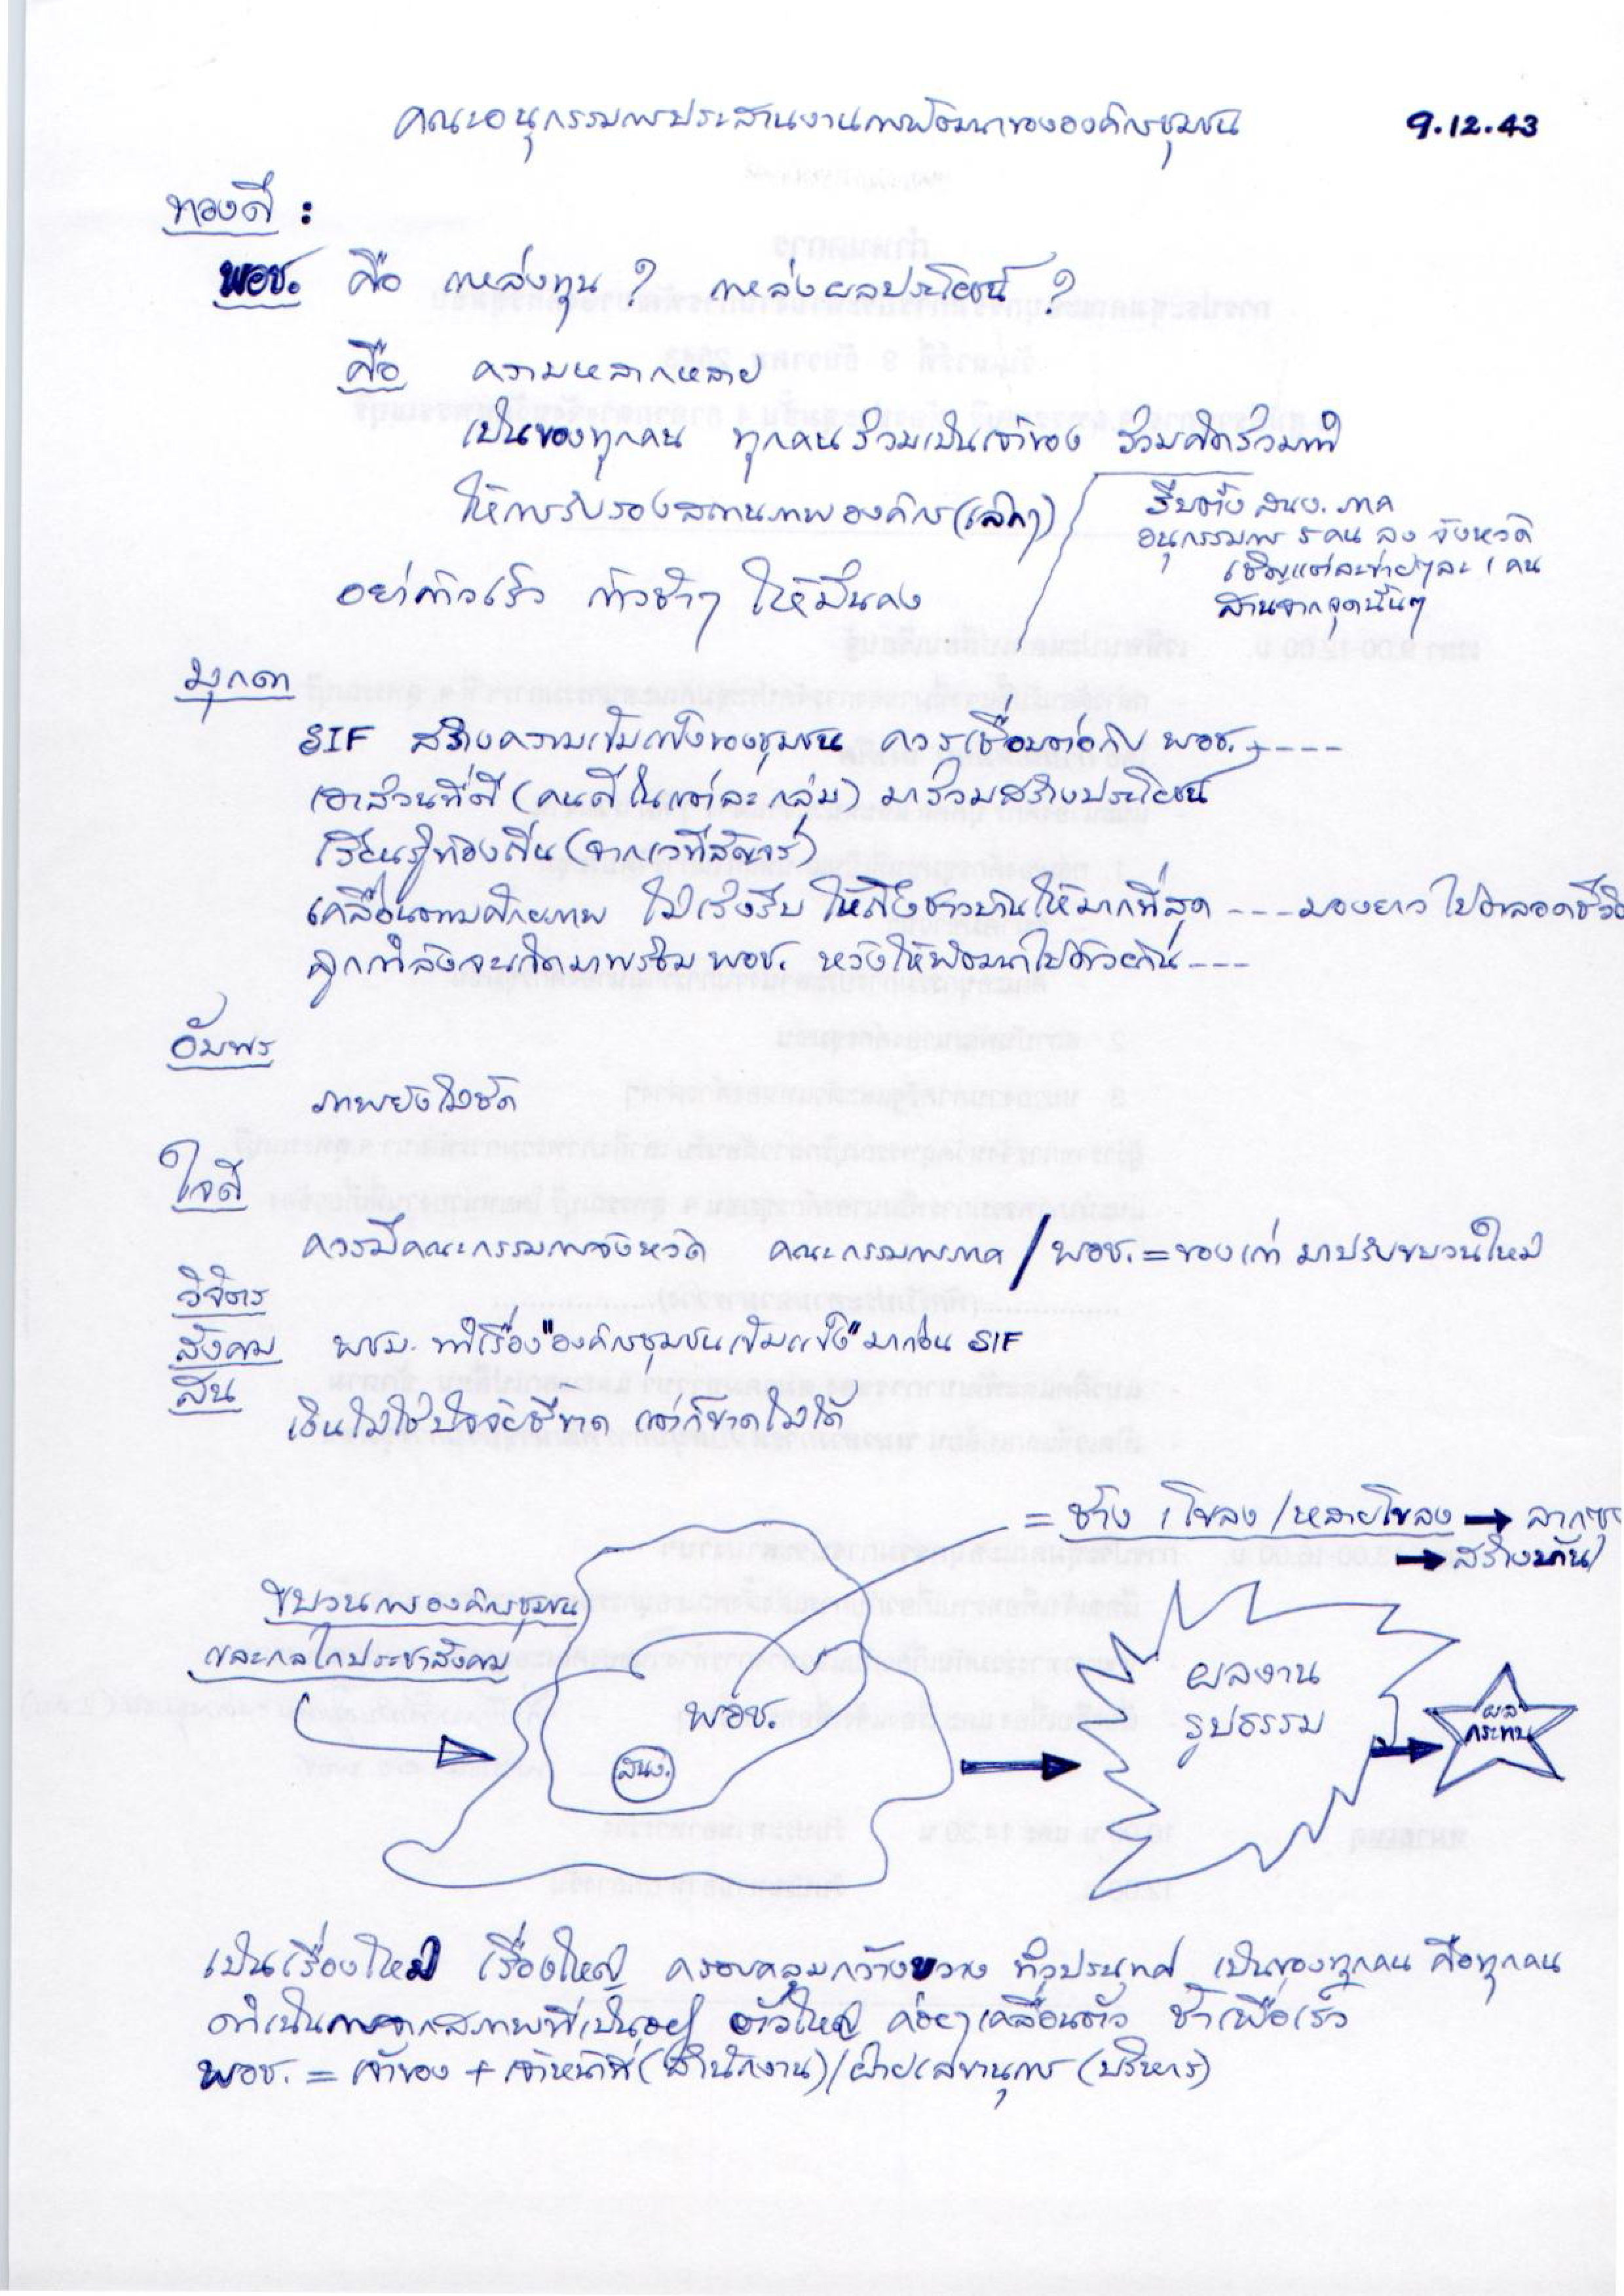 คณะอนุกรรมการประสานงานการพัฒนาขององค์กรชุมชน 9.12.43
ทองดี :
พอช. คือ แหล่งทุน ? แหล่งผลประโยชน์ ?
คือ ความหลากหลาย
เป็นของทุกคน ทุกคนร่วมเป็นเจ้าของ ร่วมคิดร่วมทำ
ให้การรับรองสถานภาพองค์กร(เล็กๆ)
รีบตั้ง สนง. ภาค
อนุกรรมการ 5 คน ลง จังหวัด
เชิญแต่ละข่ายๆละ 1 คน
สานจากจุดนั้นๆ
อย่าก้าวเร็ว ก้าวช้าๆ ให้มั่นคง
มุกดา
SIF สร้างความเข้มแข็งของชุมชน ควรเชื่อมต่อกับ พอช. ----
เอาส่วนที่ดี (คนดีในแต่ละกลุ่ม) มาร่วมสร้างประโยชน์
เรียนรู้ท้องถิ่น (จากเวทีสัญจร)
เคลื่อนตามศักยภาพ ไม่เร่งรีบ ให้ถึงชาวบ้านให้มากที่สุด --- มองยาว ไปตลอดชีวิต
ลูกกำลังจะเกิดมาพร้อม พอช. หวังให้พัฒนาไปด้วยกัน ---
อัมพร
ภาพยังไม่ชัด
ใจดี
ควรมีคณะกรรมการจังหวัด คณะกรรมการภาค / พอช. = ของเก่า มาปรับขบวนใหม่
วิจิตร
สังคม พชม. ทำเรื่อง "องค์กรชุมชนเข้มแข็ง" มาก่อน SIF
สน
เงินไม่ใช่ปัจจัยชี้ขาด แต่ก็ขาดไม่ได้
= ช้าง 1 โขลง / หลายโขลง → ลากซุง
→ สร้างบ้าน
ขบวนการองค์กรชุมชน
และกลไกประชาสังคม
พอช.
สนง.
ผลงาน
รูปธรรม
ผล
กระทบ
เป็นเรื่องใหม่ เรื่องใหญ่ ครอบคลุมกว้างขวาง ทั่วประเทศ เป็นของทุกคน คือทุกคน
ดำเนินการจากสภาพที่เป็นอยู่ ตัวใหญ่ ค่อยๆเคลื่อนตัว ช้าเพื่อเร็ว
พอช. = เจ้าของ + เจ้าหน้าที่ (สำนักงาน) / ฝ่ายเลขานุการ (บริหาร)